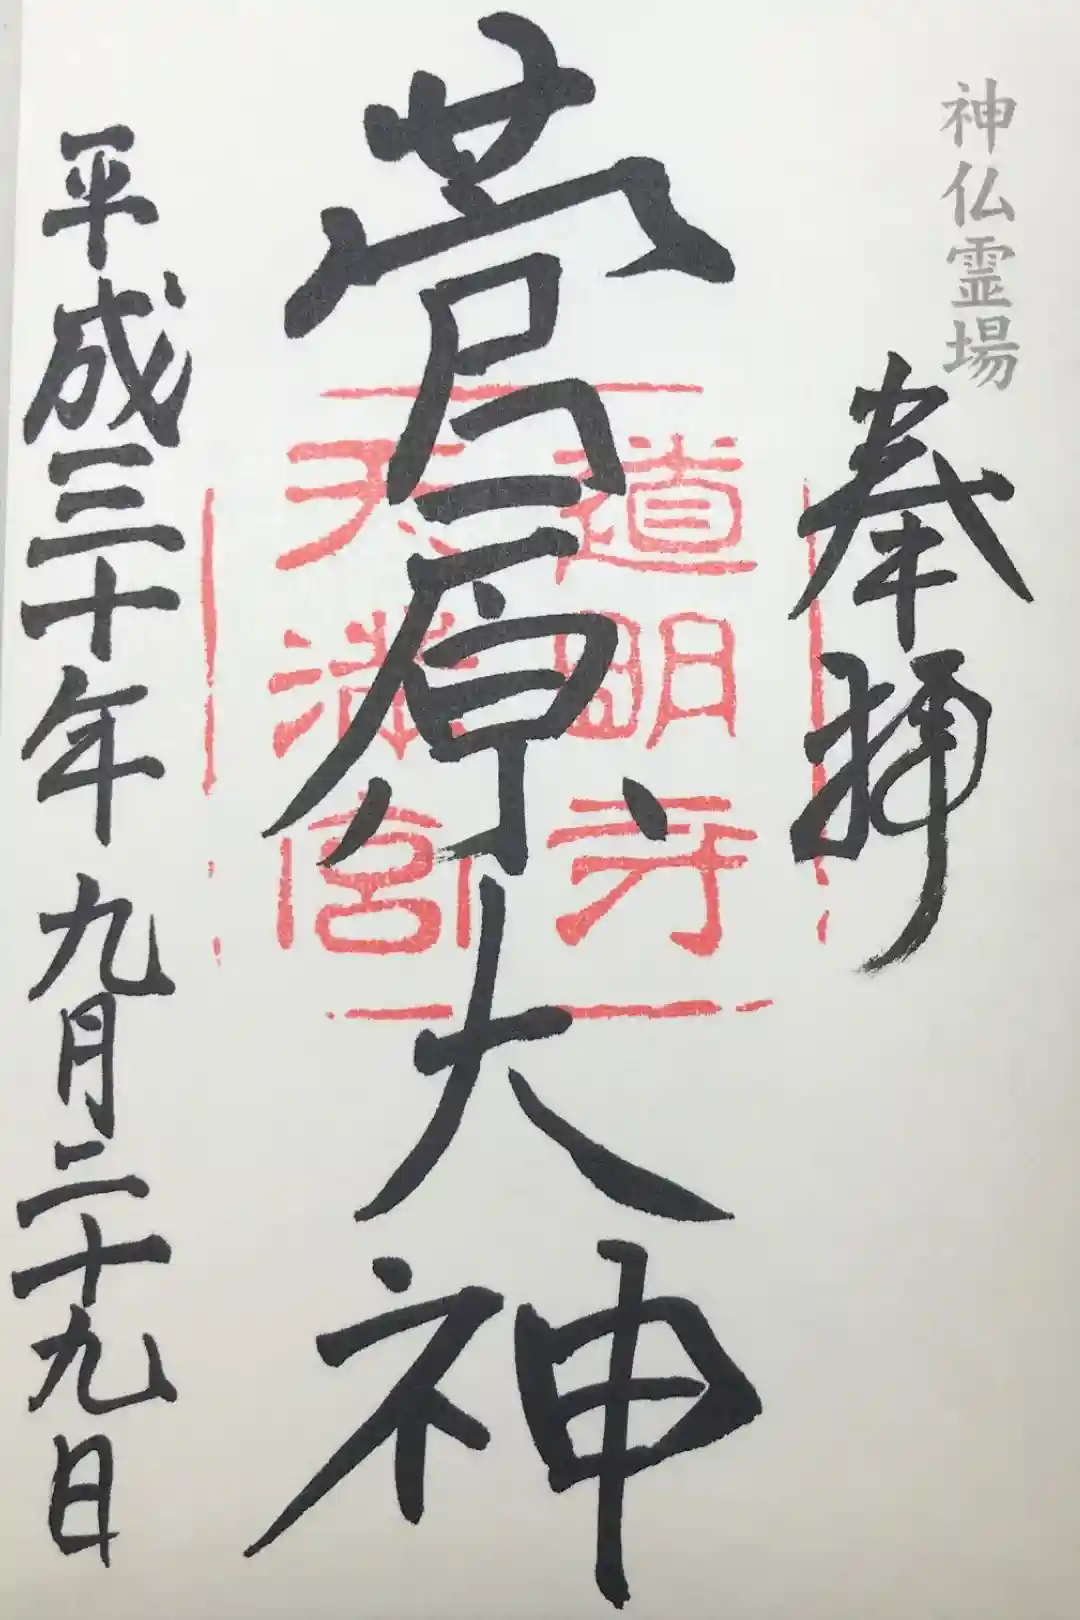 神仏霊場
奉拝
道明寺
天満宮
菅原大神
平成三十年九月二十九日